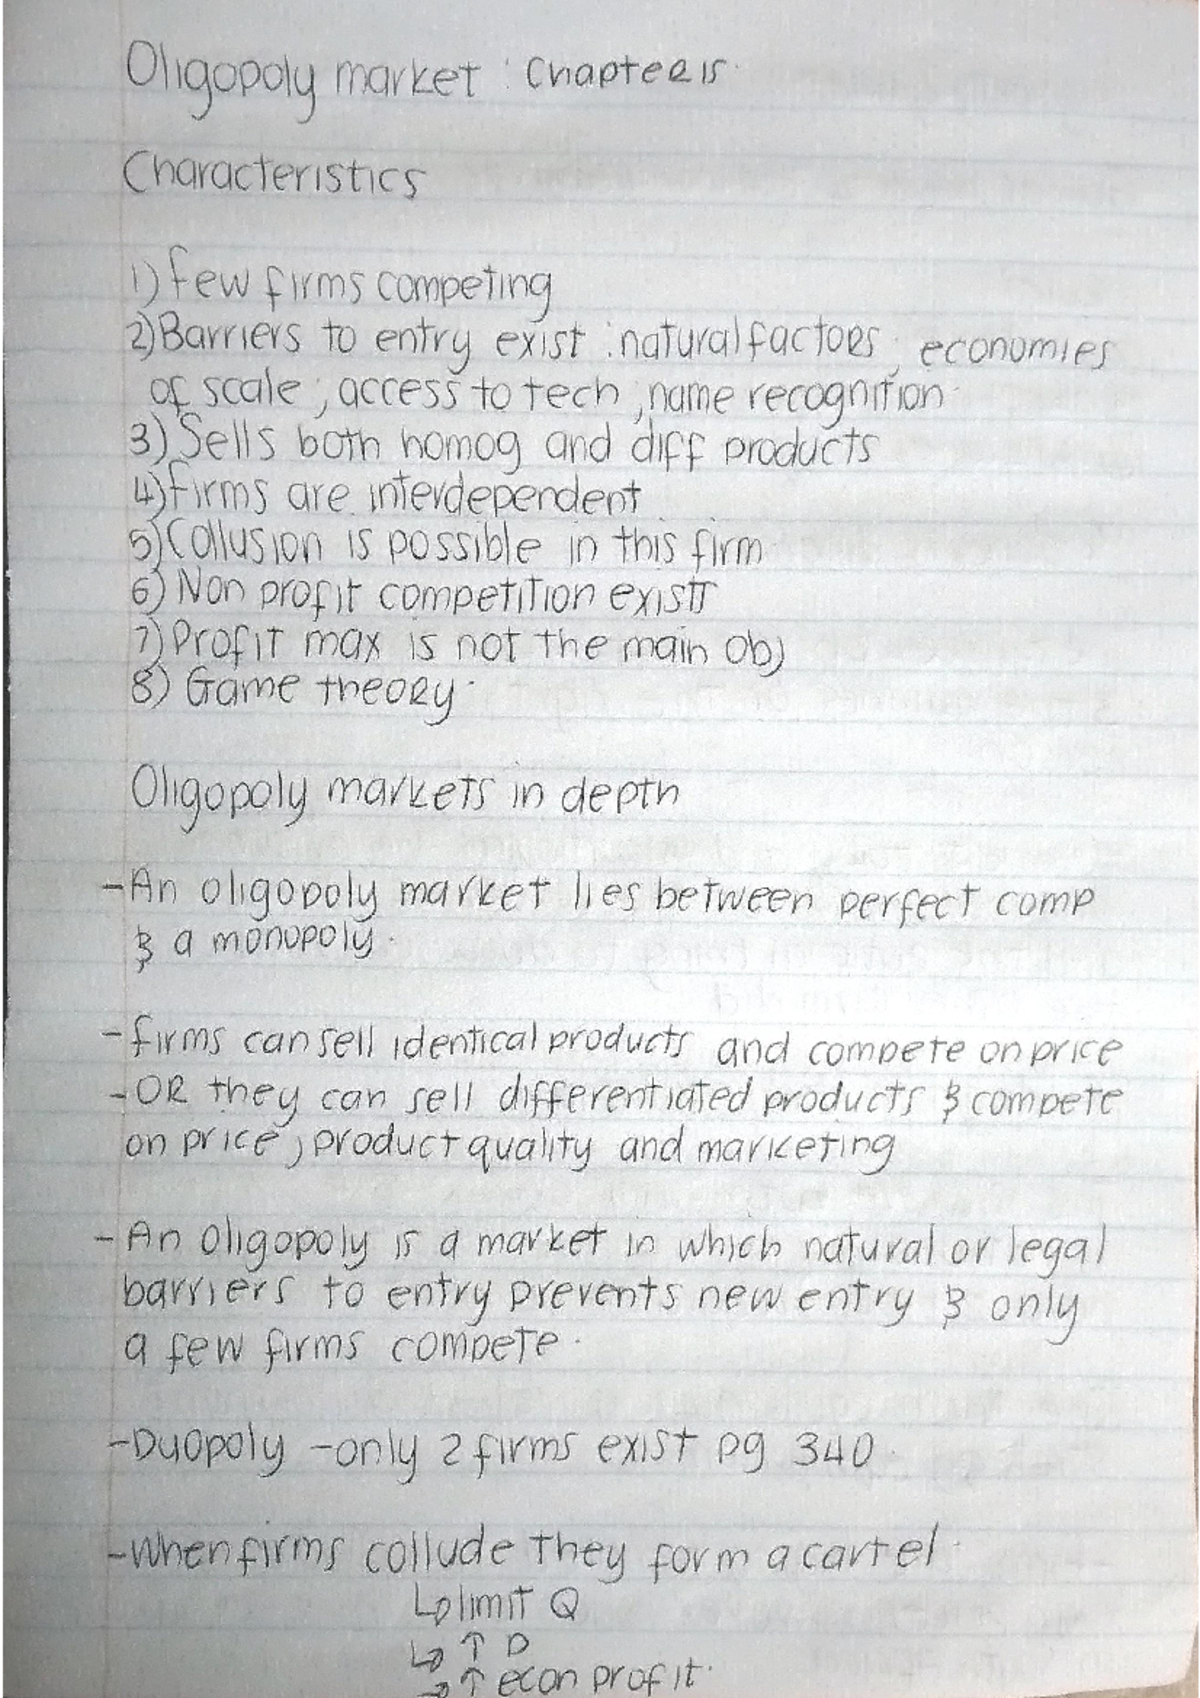 Oligopoly market : Chapter 15.
Characteristics
1) Few firms competing
2) Barriers to entry exist : natural factors ; economies
of scale ; access to tech ; name recognition.
3) Sells both homog and diff products
4) Firms are interdependent
5) Collusion is possible in this firm
6) Non profit competition exist
7) Profit max is not the main obj
8) Game theory.
Oligopoly markets in depth
- An oligopoly market lies between perfect comp
& a monopoly.
- firms can sell identical products and compete on price
- OR they can sell differentiated products & compete
on price, product quality and marketing
- An Oligopoly is a market in which natural or legal
barriers to entry prevents new entry & only
a few firms compete.
- Duopoly - only 2 firms exist pg 340.
- When firms collude they form a cartel.
↳ limit Q
↳ ↑ P
→ ↑ econ profit.